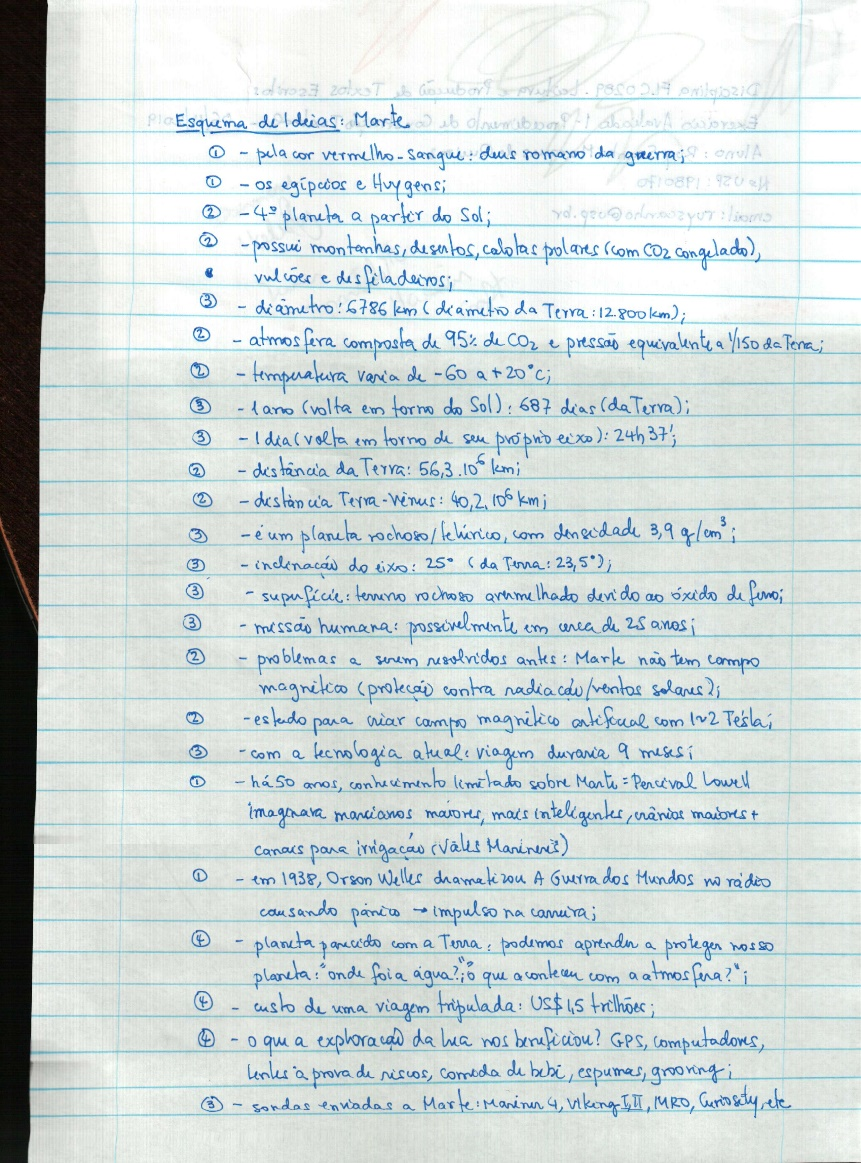 Esquema de Ideias: Marte
① - pela cor vermelho-sangue: deus romano da guerra;
① - os egípcios e Huygens;
② - 4º planeta a partir do Sol;
② - possui montanhas, desertos, calotas polares (com CO2 congelado),
vulcões e desfiladeiros;
③ - diâmetro: 6786 km (diâmetro da Terra: 12.800 km);
② - atmosfera composta de 95% de CO2 e pressão equivalente a 1/150 da Terra;
② - temperatura varia de -60 a +20°C;
③ - 1 ano (volta em torno do Sol): 687 dias (da Terra);
③ - 1 dia (volta em torno de seu próprio eixo): 24h 37';
② - distância da Terra: 56,3.10⁶ km;
② - distância Terra-Vênus: 40,2.10⁶ km;
③ - é um planeta rochoso/telúrico, com densidade 3,9 g/cm³;
③ - inclinação do eixo: 25° (da Terra: 23,5°);
③ - superfície: terreno rochoso avermelhado devido ao óxido de ferro;
③ - missão humana: possivelmente em cerca de 25 anos;
② - problemas a serem resolvidos antes: Marte não tem campo
magnético (proteção contra radiação/ventos solares);
② - estudo para criar campo magnético artificial com 1~2 Tesla;
③ - com a tecnologia atual: viagem duraria 9 meses;
① - há 50 anos, conhecimento limitado sobre Marte = Percival Lowell
imaginava marcianos maiores, mais inteligentes, crânios maiores +
canais para irrigação (Valles Marineris)
① - em 1938, Orson Welles dramatizou A Guerra dos Mundos no rádio
causando pânico → impulso na carreira;
④ - planeta parecido com a Terra: podemos aprender a proteger nosso
planeta: "onde foi a água?"; "o que aconteceu com a atmosfera?";
④ - custo de uma viagem tripulada: US$ 1,5 trilhões;
④ - o que a exploração da lua nos beneficiou? GPS, computadores,
lentes à prova de riscos, comida de bebê, espumas, grooving;
③ - sondas enviadas a Marte: Mariner 4, Viking I, II, MRO, Curiosity, etc